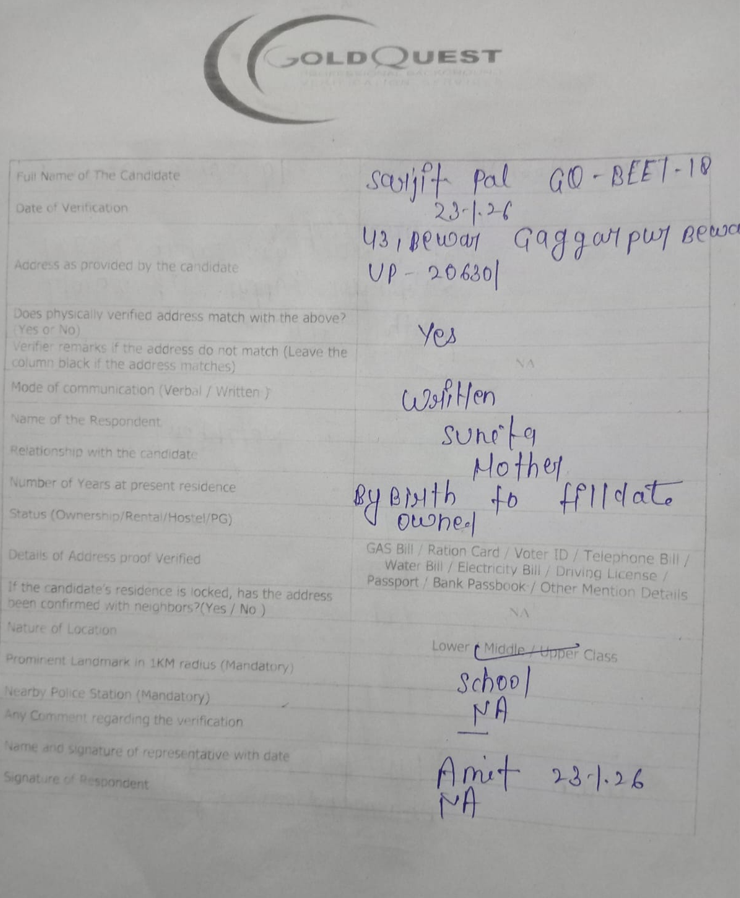 GOLDQUEST
Full Name of The Candidate Sarjit Pal GQ-BEE1-18
Date of Verification 23-1.26
Address as provided by the candidate 43, Bewar Gaggarpur Bewa
UP - 206301
Does physically verified address match with the above?
(Yes or No) Yes
Verifier remarks if the address do not match (Leave the
column black if the address matches) NA
Mode of communication (Verbal / Written ) Written
Name of the Respondent Sunita
Relationship with the candidate Mother
Number of Years at present residence By Birth to filldate
Status (Ownership/Rental/Hostel/PG) owned
Details of Address proof Verified GAS Bill / Ration Card / Voter ID / Telephone Bill /
Water Bill / Electricity Bill / Driving License /
Passport / Bank Passbook / Other Mention Details
If the candidate's residence is locked, has the address
been confirmed with neighbors?(Yes / No ) NA
Nature of Location Lower / Middle / Upper Class
Prominent Landmark in 1KM radius (Mandatory) School
Nearby Police Station (Mandatory) NA
Any Comment regarding the verification —
Name and signature of representative with date Amit 23-1.26
Signature of Respondent NA